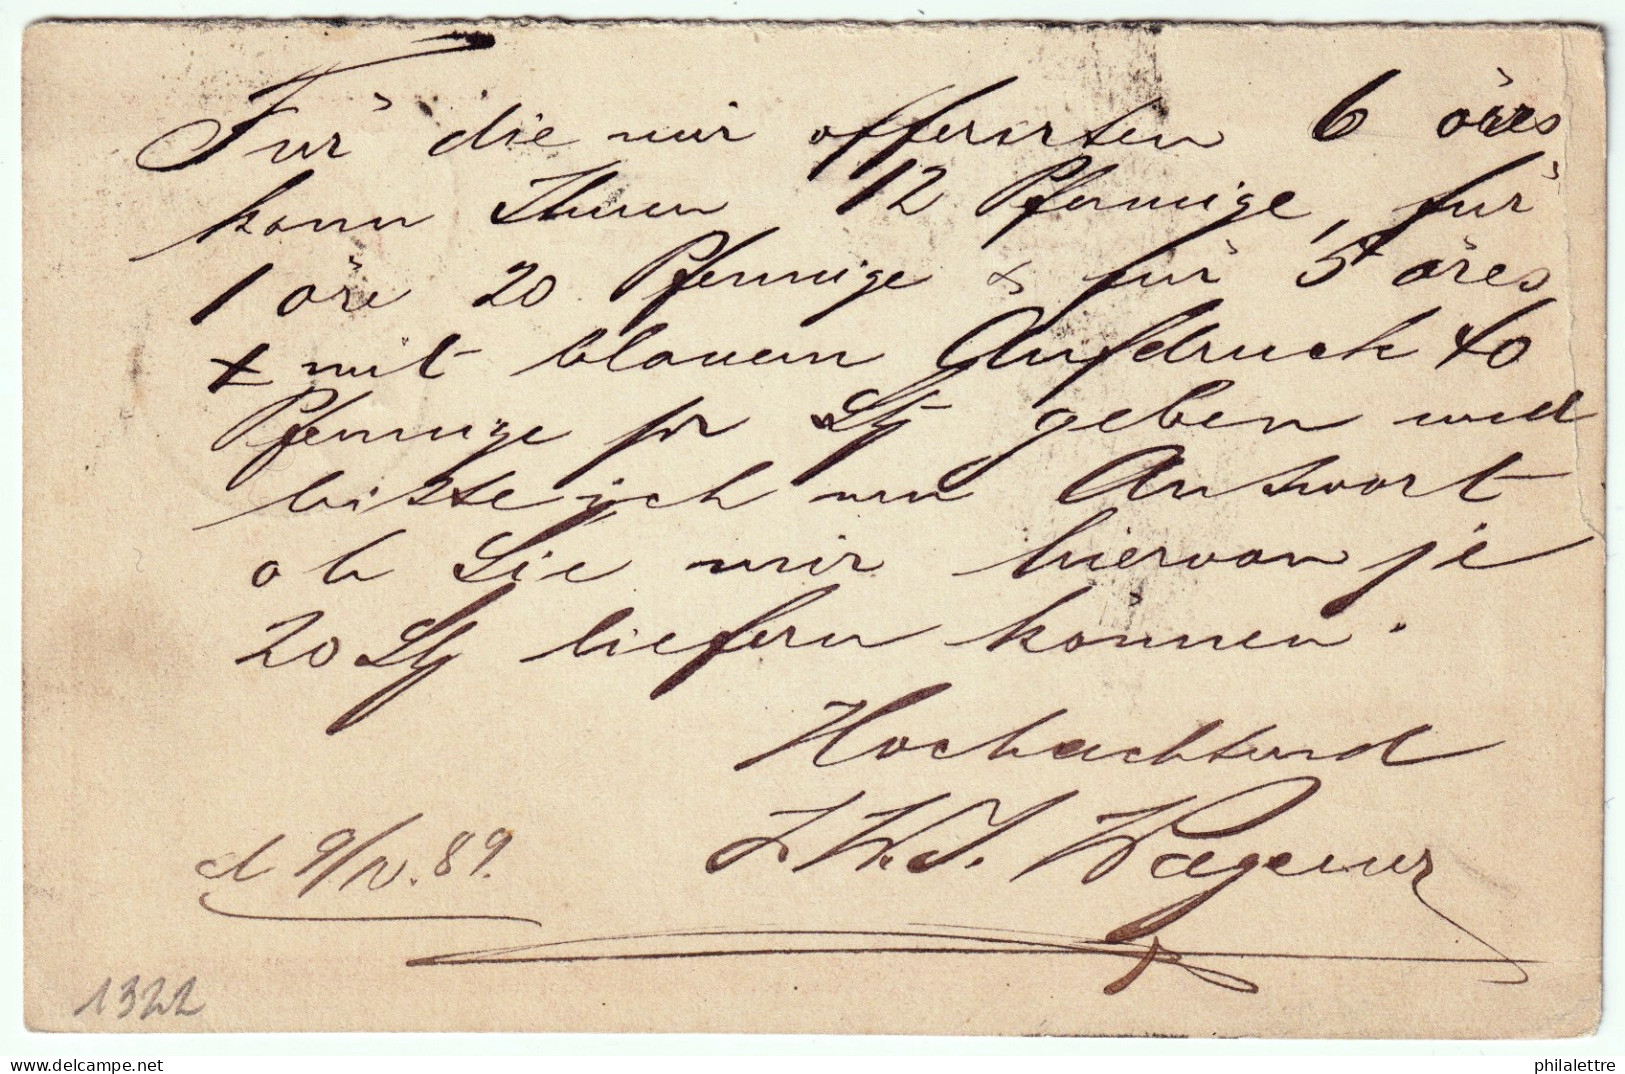 Für die mir offerirten 6 öres
kann Ihnen 12 Pfennige, für
1 öre 20 Pfennige & für 5 öres
+ mit blauem Aufdruck 40
Pfennige pr Stj geben und
bitte ich um Antwort
ob Sie mir hiervon je
20 Stj liefern können.
Hochachtend
J. Wagener
d 9/IV. 89.
1322
philalettre